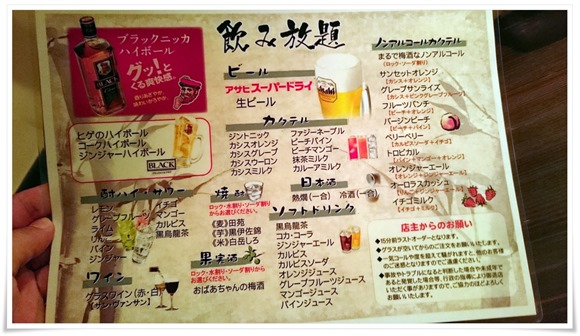 飲み放題
ブラックニッカ
ハイボール
グッ!と
くる爽快感。
香りあざやか、
味わいかろやか。
BLACK
ヒゲのハイボール
コークハイボール
ジンジャーハイボール
BLACK
ビール
アサヒスーパードライ
生ビール
Asahi
カクテル
ジントニック
カシスオレンジ
カシスグレープ
カシスウーロン
カシスミルク
ファジーネーブル
ピーチパイン
ピーチマンゴー
抹茶ミルク
カルーアミルク
酎ハイ・サワー
レモン
グレープフルーツ
ライム
カルピス
パイン
ジンジャー
イチゴ
マンゴー
カルピス
黒烏龍茶
焼酎
ロック・水割り・ソーダ割りから
お選びください。
《麦》田苑
《芋》黒伊佐錦
《米》白岳しろ
日本酒
熱燗(一合)
冷酒(一合)
ワイン
グラスワイン(赤・白)
《サン・ヴァンサン》
果実酒
ロック・水割り・ソーダ割りから
お選びください。
おばあちゃんの梅酒
ソフトドリンク
黒烏龍茶
コカ・コーラ
ジンジャーエール
カルピス
カルピスソーダ
オレンジジュース
グレープフルーツジュース
マンゴージュース
パインジュース
ノンアルコールカクテル
まるで梅酒なノンアルコール
(ロック・ソーダ割り)
サンセットオレンジ
【カシス+オレンジ】
グレープサンライズ
【カシス+ピンクグレープフルーツ】
フルーツパンチ
【ピーチ+パイン】
バージンピーチ
ベリーベリー
トロピカル
【パイン+マンゴー+オレンジ】
オレンジジャーエール
オーロラスカッシュ
イチゴミルク
【イチゴ+ミルク】
店主からのお願い
◆15分前ラストオーダーとなります。
◆グラスが空いてからのご注文をお願い致します。